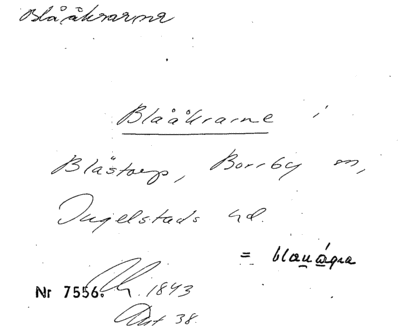 Blååkrarne
Blååkrarne i
Blästorp, Borrby sn,
Ingelstads hd.
= blauågra
Nr 7556. 1843
Akt 38.